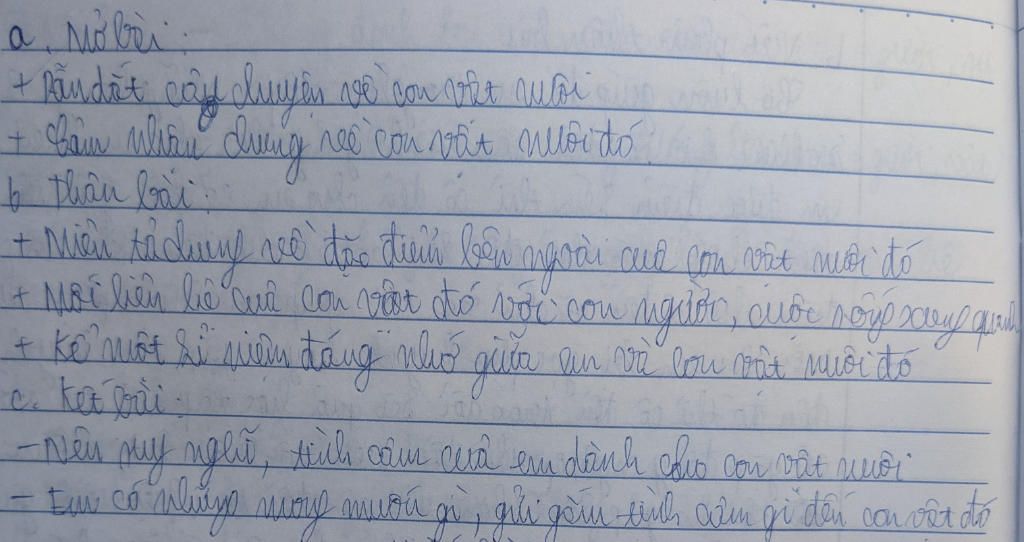 a. Mở bài:
+ Dẫn dắt câu chuyện về con vật nuôi
+ Cảm nhận chung về con vật nuôi đó
b. thân bài:
+ Miêu tả chung về đặc điểm bên ngoài của con vật nuôi đó
+ Mối liên hệ của con vật đó với con người, cuộc sống xung quanh
+ Kể một kỉ niệm đáng nhớ giữa em và con vật nuôi đó
c. Kết bài:
- Nêu suy nghĩ, tình cảm của em dành cho con vật nuôi
- Em có những mong muốn gì, gửi gắm tình cảm gì đến con vật đó